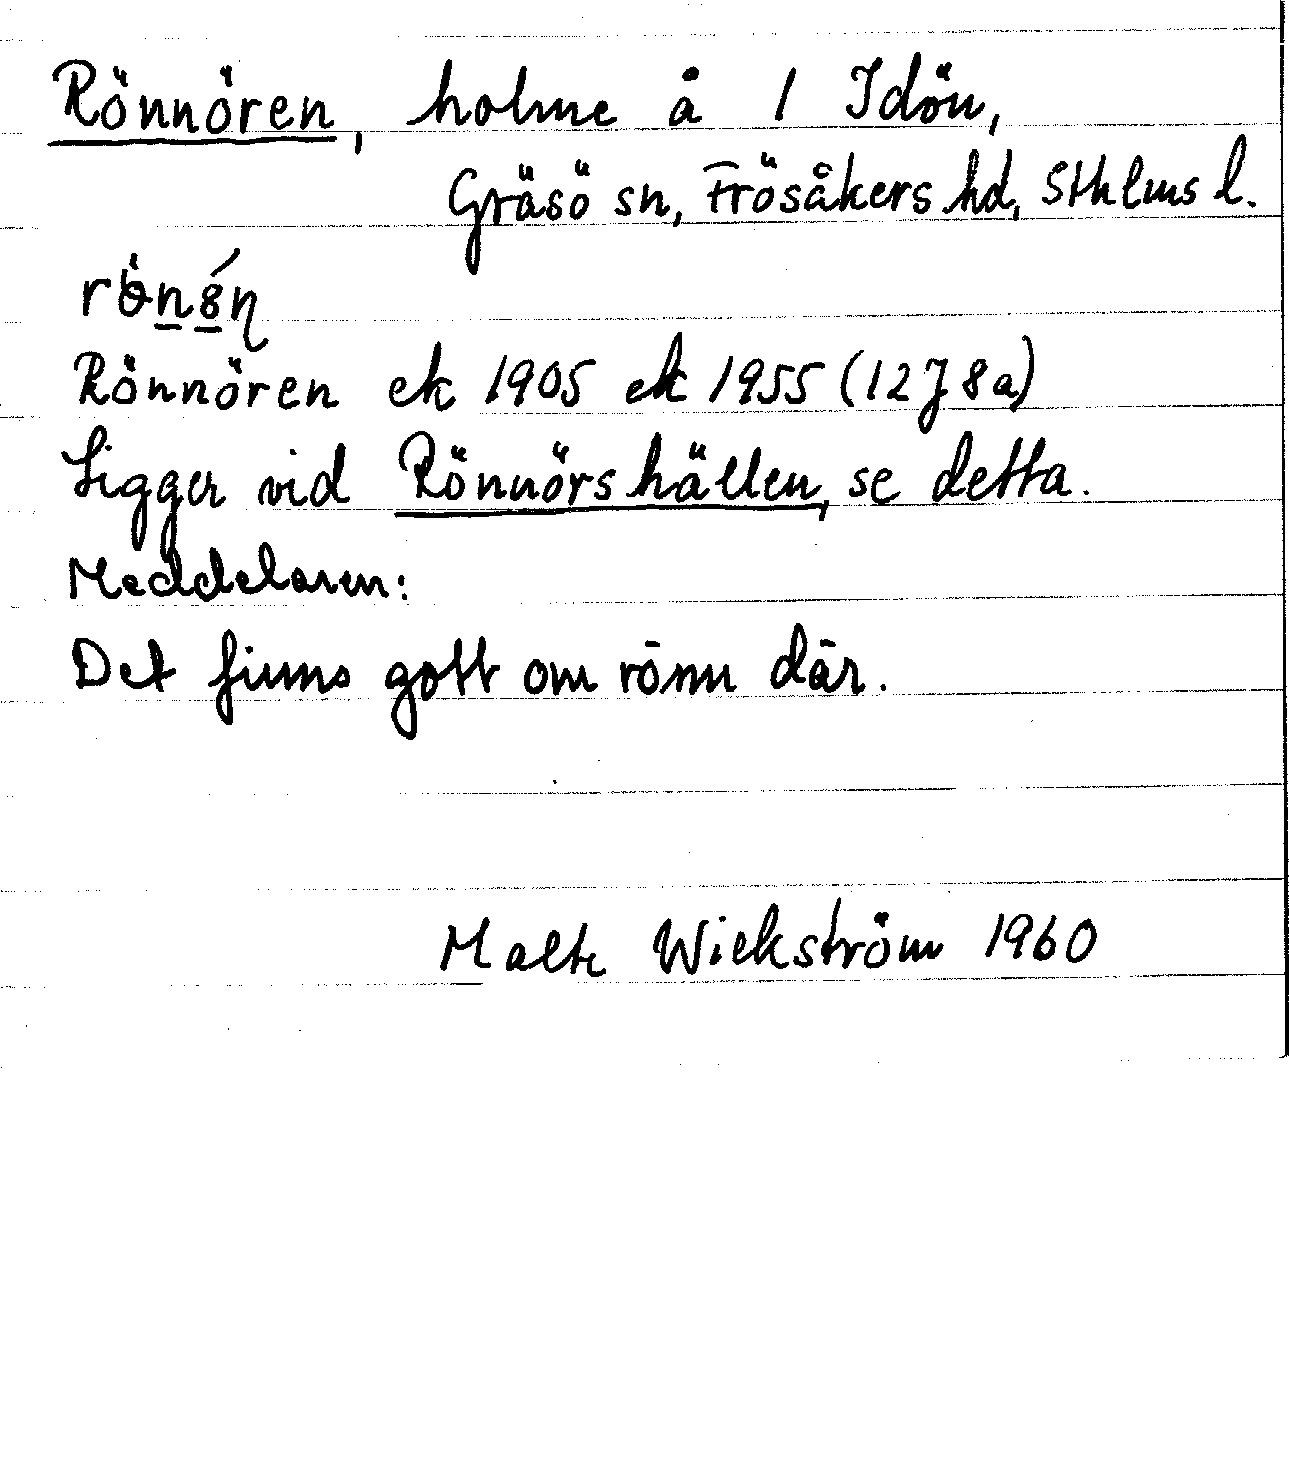 Rönnören, holme å 1 Idön,
Gräsö sn, Frösåkers hd, Sthlms l.
Rönnören ek 1905 ek 1955 (12J 8a)
Ligger vid Rönnörshällen, se detta.
Meddelaren:
Det finns gott om rönn där.
Malte Wickström 1960